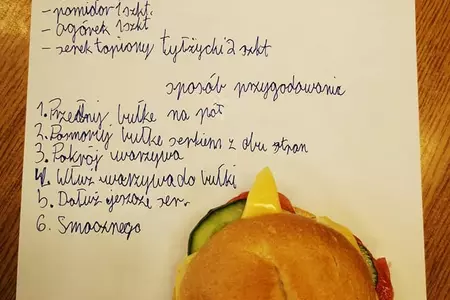 - pomidor 1 szkt.
- ogórek 1 szkt
- serek topiony tyłżycki 2 szkt
sposób przygodowanie
1. Przednij bułke na puł
2. Posmoruj bułke serkiem z obu stran
3. Pokrój warzywa
4. Włuż warzywa do bułki
5. Dołuż jeszcze ser.
6. Smacznego